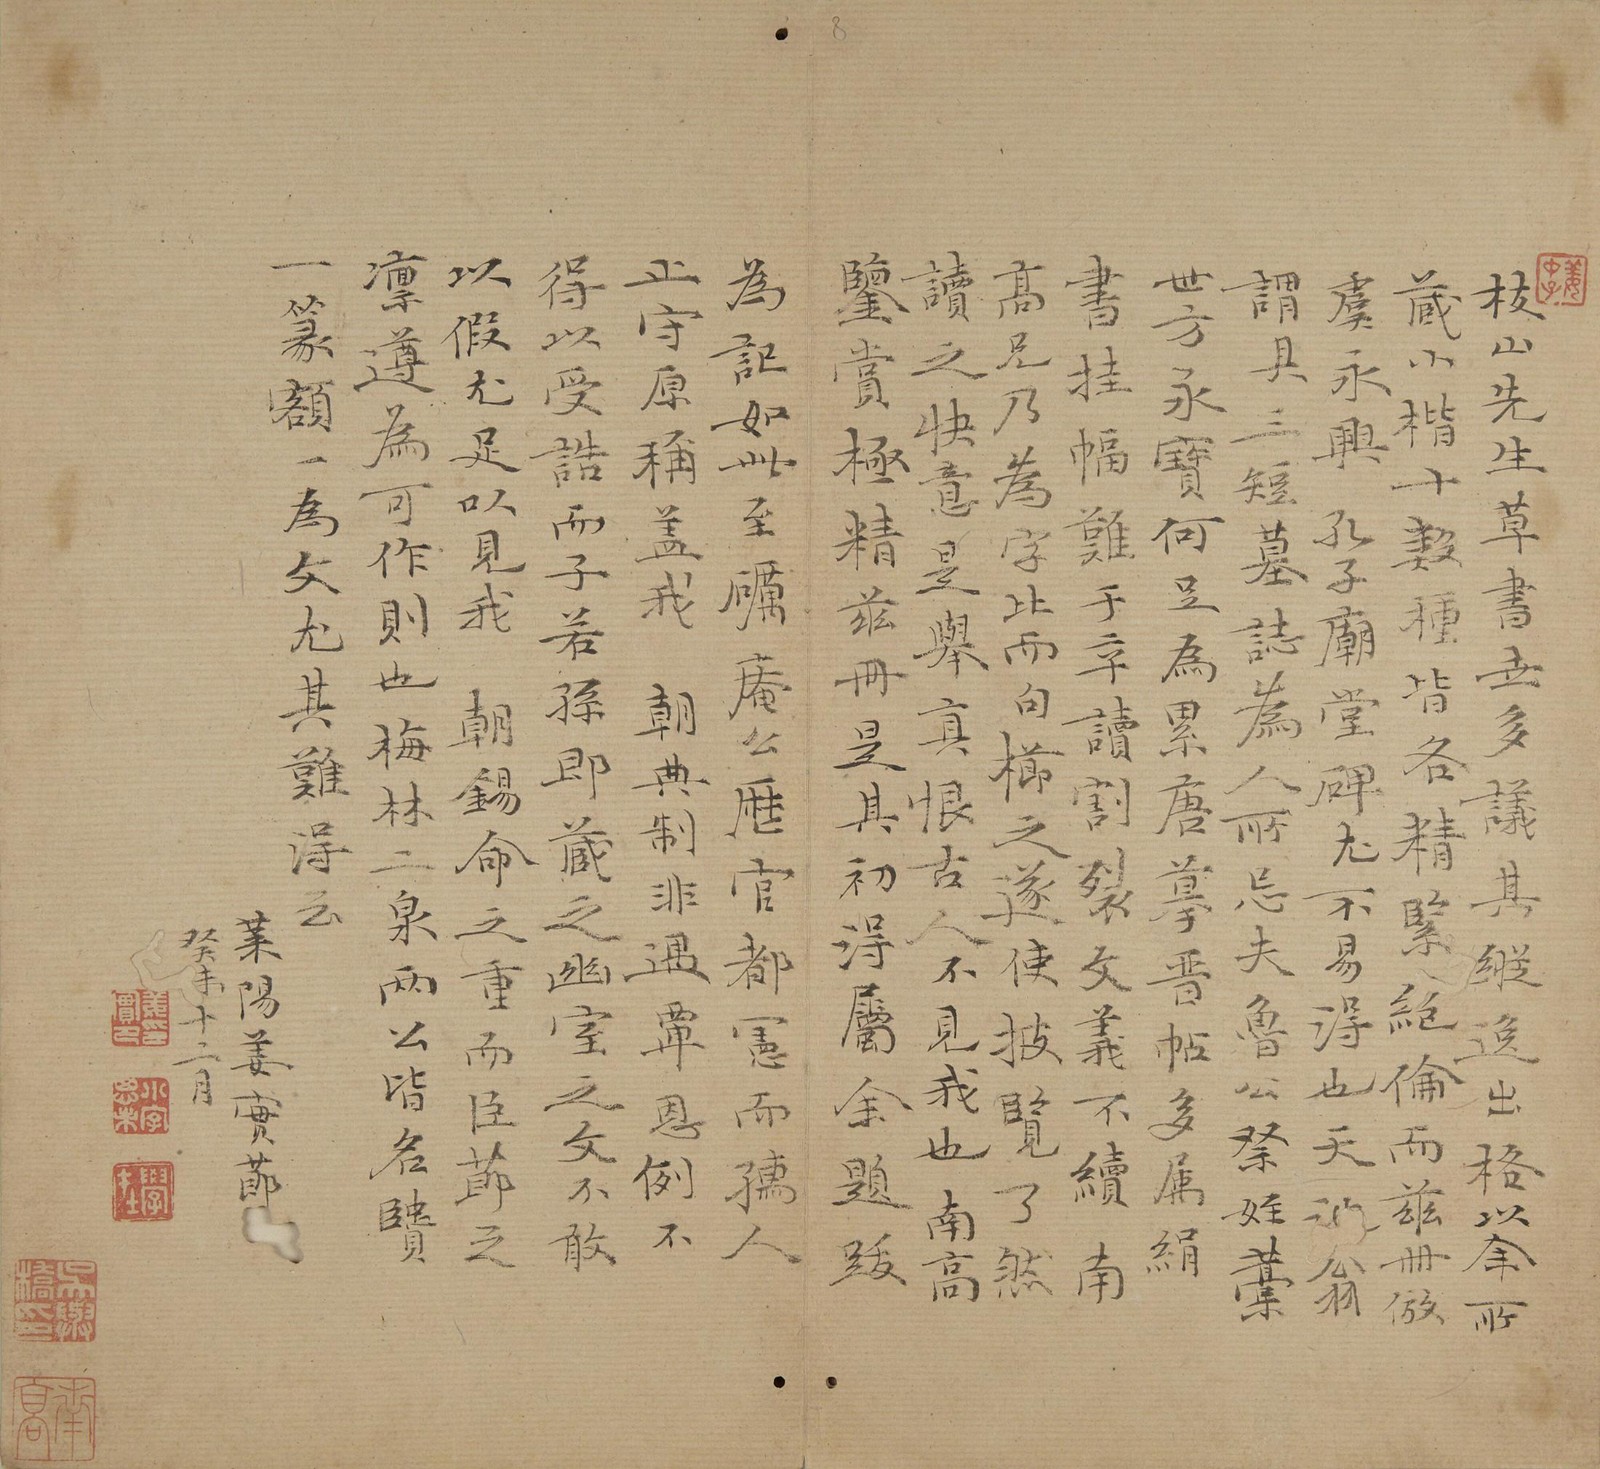 枝山先生草書世多議其縱逸出格以余所
藏小楷十數種皆各精緊絕倫而茲冊倣
虞永興孔子廟堂碑尤不易得也天 翁
謂具三短墓誌為人所忌夫魯公祭姪藁
世方永寶何足為累唐摹晉帖多属絹
書挂幅難于卒讀割裂文義不續南
高兄乃為字比而句櫛之遂使披覽了然
讀之快意是舉真恨古人不見我也南高
鑒賞極精茲冊是其初得屬余題跋
為記如此至礪菴公歷官都憲而孺人
止守原稱蓋我 朝典制非遇覃恩例不
得以受誥而子若孫即藏之幽室之文不敢
以假尤足以見我 朝錫命之重而臣節之
凜遵為可作則也梅林二泉兩公皆名賢
一篆額一為文尤其難得云
萊陽姜實節
癸未十二月
姜實節印
小字思未
學在
南高